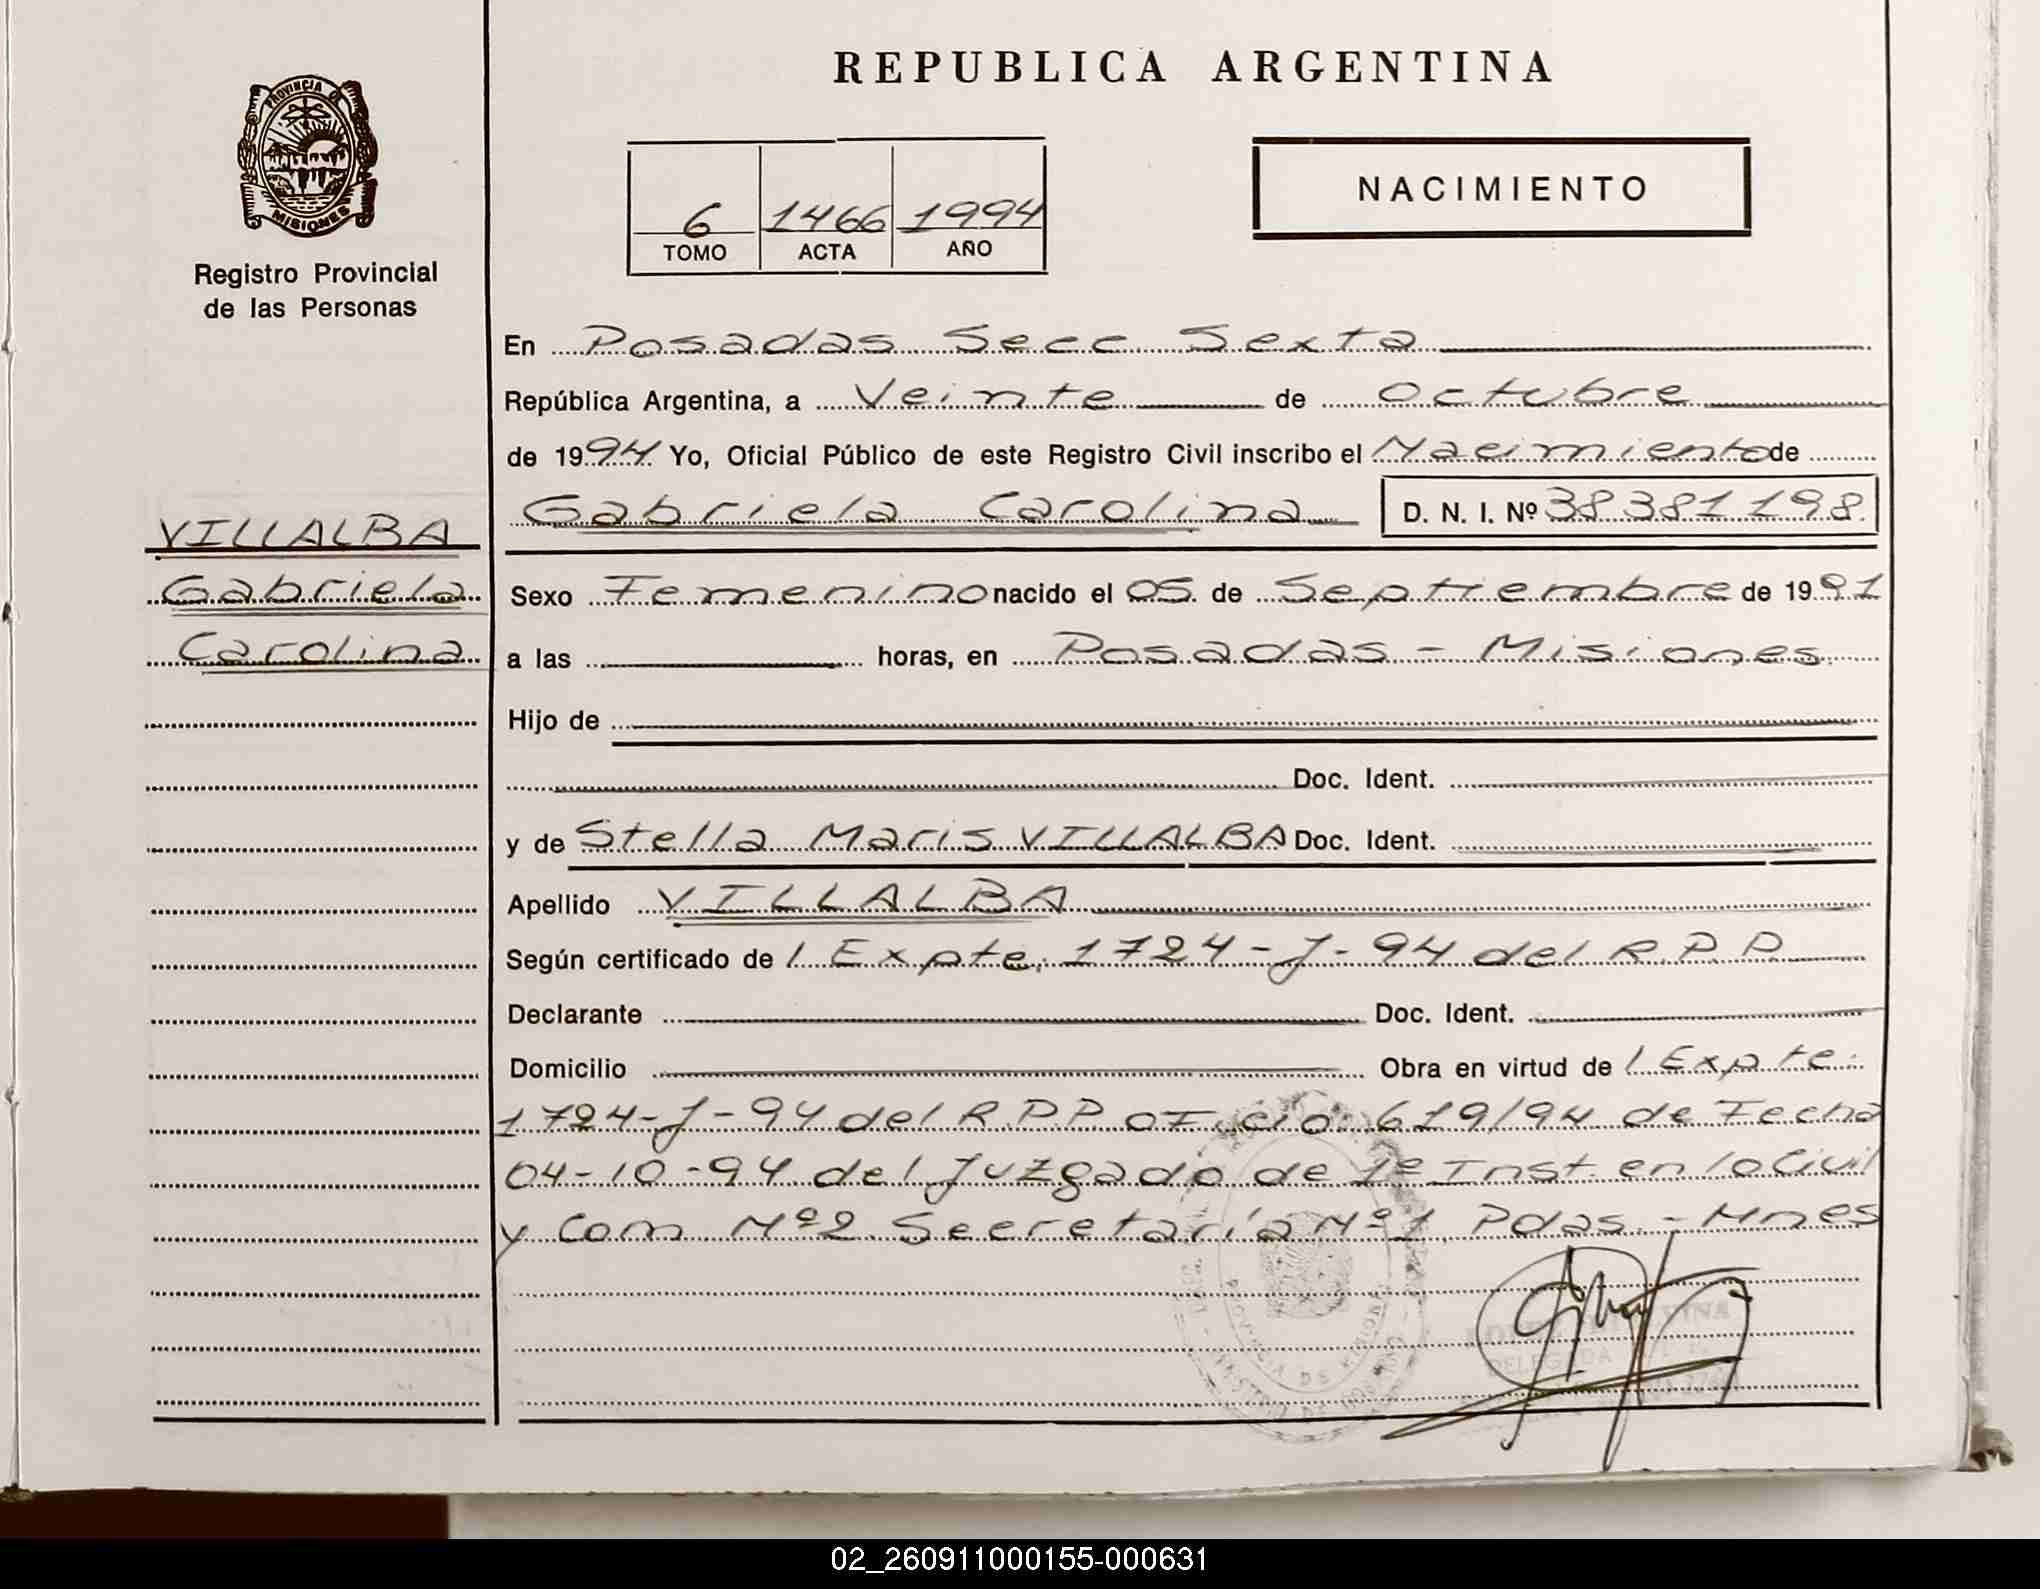 REPUBLICA ARGENTINA
PROVINCIA DE
MISIONES
Registro Provincial
de las Personas
6 1466 1994
TOMO ACTA AÑO
NACIMIENTO
En Posadas Secc Sexta
República Argentina, a Veinte de Octubre
de 1994 Yo, Oficial Público de este Registro Civil inscribo el Nacimiento de
Gabriela Carolina D. N. I. Nº 38381198
VILLALBA
Gabriela
Carolina
Sexo Femenino nacido el 05 de Septiembre de 1991
a las horas, en Posadas - Misiones
Hijo de
Doc. Ident.
y de Stella Maris VILLALBA Doc. Ident.
Apellido VILLALBA
Según certificado de / Expte. 1724-J-94 del R.P.P.
Declarante Doc. Ident.
Domicilio Obra en virtud de / Expte.
1724-J-94 del R.P.P. oficio: 619/94 de Fecha
04-10-94 del Juzgado de 1º Inst. en lo Civil
y Com Nº2 Secretaría Nº1 Pdas. - Mnes
PROVINCIA DE MISIONES
DELEGADA
02_260911000155-000631